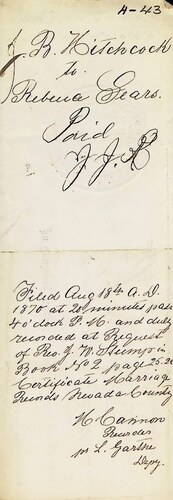 A-43
J. B. Hitchcock
to
Rebecca Sears.
Paid
J J R
Filed Aug 18th A. D.
1870 at 20 minutes past
4 o'clock P. M. and duly
recorded at Request
of Rev. J. W. Stump in
Book No 2 page 25.26
Certificate Marriage
Records Nevada County
H Cannon
Recorder
pr L. Garthe
Depy.